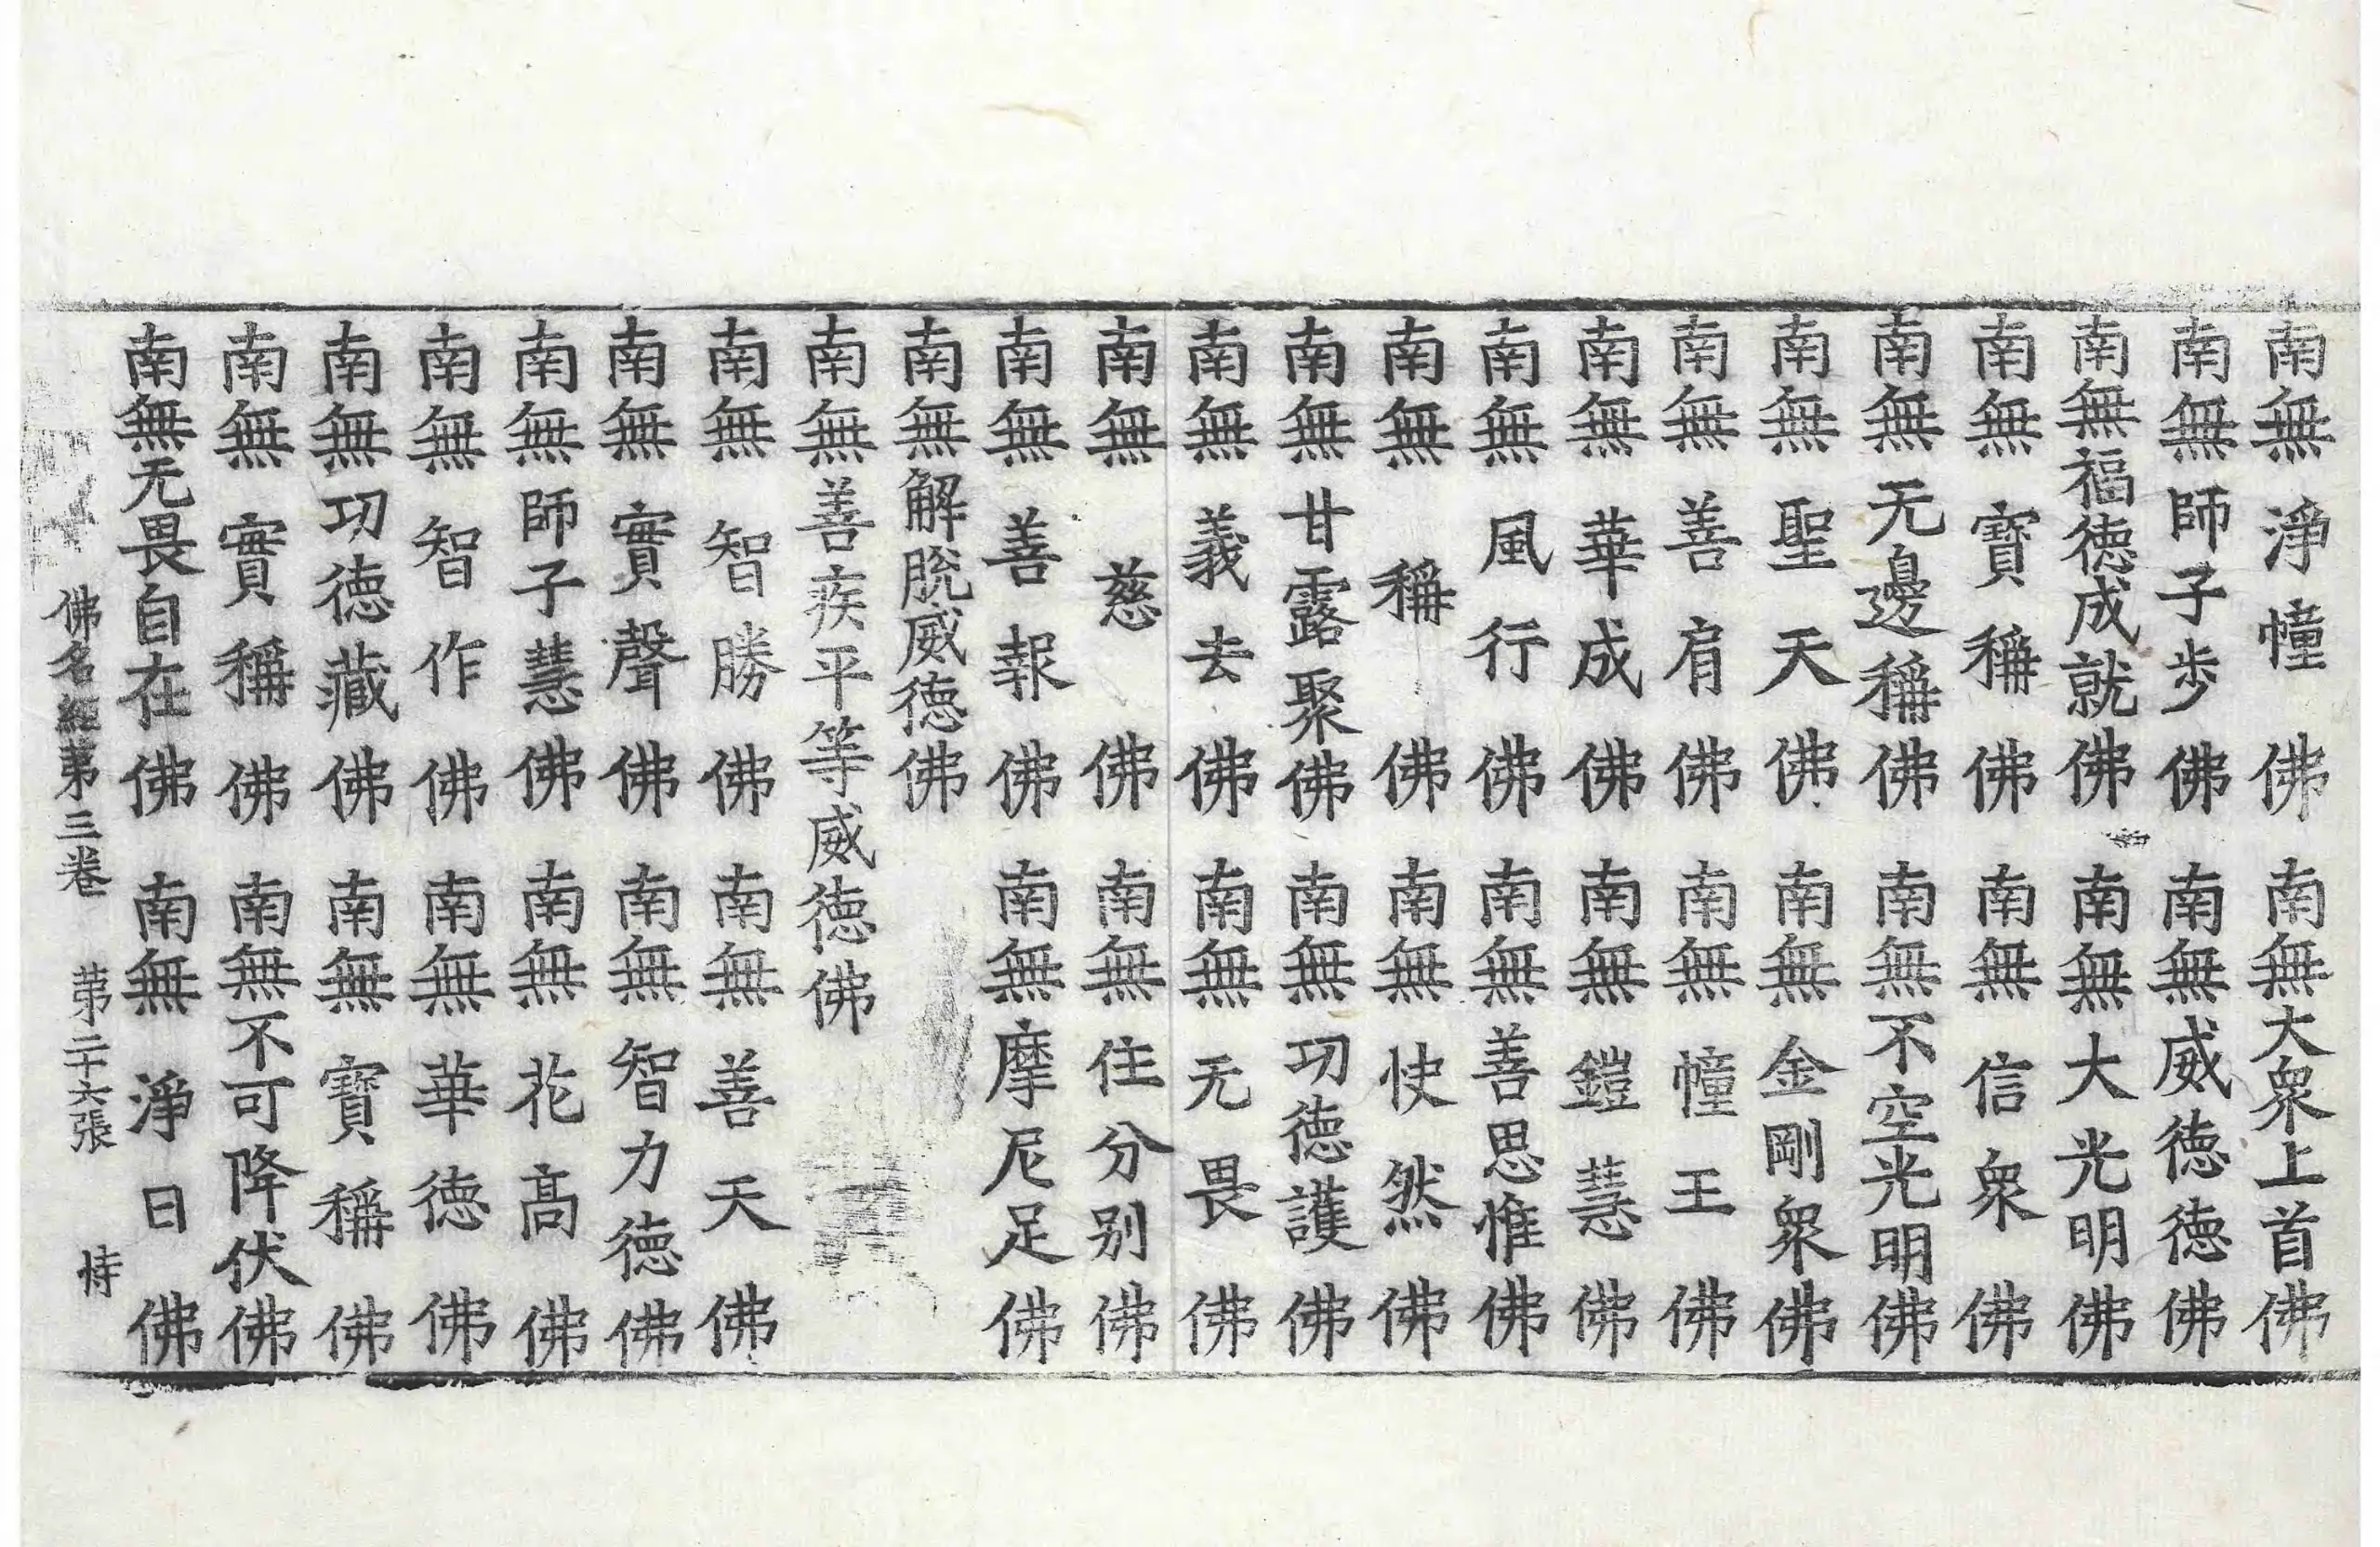 南無淨幢佛　南無大衆上首佛
南無師子步佛　南無威德德佛
南無福德成就佛　南無大光明佛
南無寶稱佛　南無信衆佛
南無无邊稱佛　南無不空光明佛
南無聖天佛　南無金剛衆佛
南無善肩佛　南無幢王佛
南無華成佛　南無鎧慧佛
南無風行佛　南無善思惟佛
南無稱佛　南無快然佛
南無甘露聚佛　南無功德護佛
南無義去佛　南無无畏佛
南無慈佛　南無住分別佛
南無善報佛　南無摩尼足佛
南無解脫威德佛
南無善疾平等威德佛
南無智勝佛　南無善天佛
南無實聲佛　南無智力德佛
南無師子慧佛　南無花高佛
南無智作佛　南無華德佛
南無功德藏佛　南無寶稱佛
南無實稱佛　南無不可降伏佛
南無无畏自在佛　南無淨日佛
佛名經第三卷　第二十六張　恃